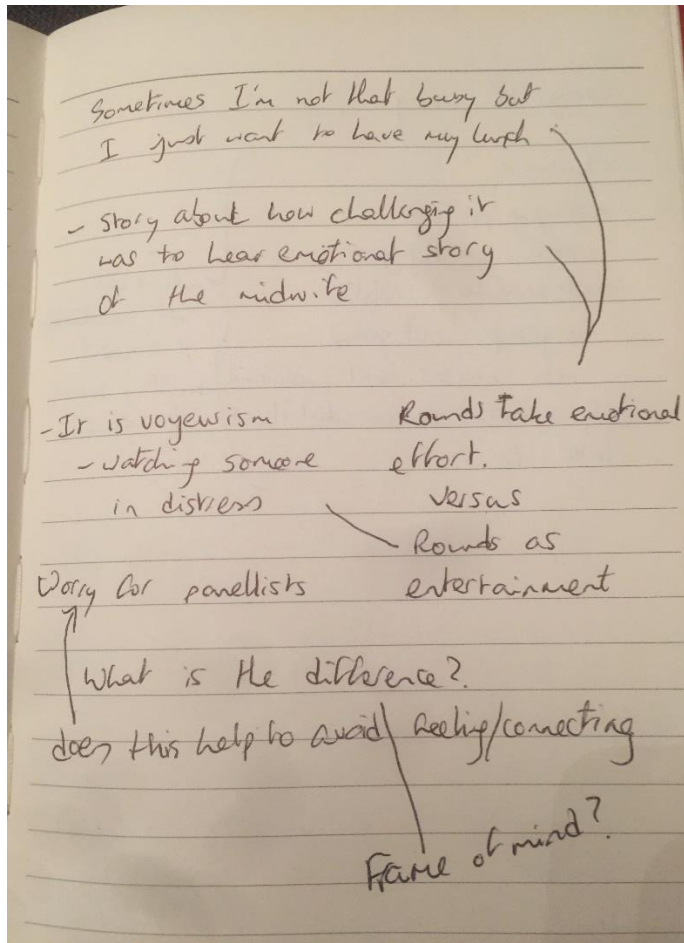 Sometimes I'm not that busy but
I just want to have my lunch
- Story about how challenging it
was to hear emotional story
of the midwife
- It is voyeurism
- watching someone
in distress
Rounds take emotional
effort.
versus
Rounds as
entertainment
Worry for panellists
What is the difference?
does this help to avoid feeling/connecting
Frame of mind?